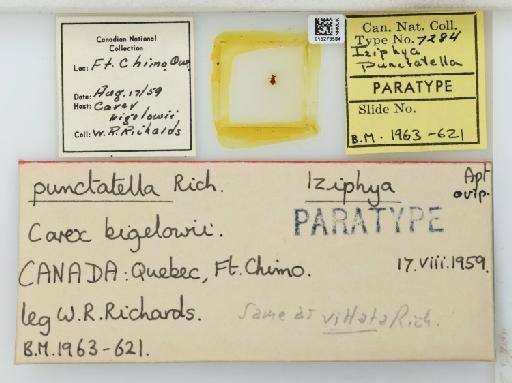 Canadian National
Collection
Loc: Ft. Chimo, Que.
Date: Aug. 17/59
Host: Carex
bigelowii
Coll: W.R. Richards
Can. Nat. Coll.
Type No. 7284
Iziphya
punctatella
PARATYPE
Slide No.
B.M. 1963-621
punctatella Rich. Iziphya Apt
ovip.
PARATYPE
Carex bigelowii.
CANADA: Quebec, Ft. Chimo. 17.viii.1959.
leg W.R. Richards. Same as vittata Rich.!
B.M. 1963-621.